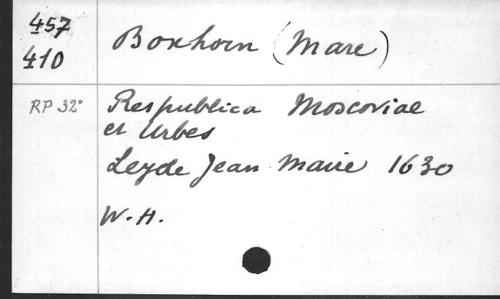 457
410
Boxhorn (Marc)
RP 32°
Respublica Moscoviae
et Urbes
Leyde Jean Maire 1630
W.H.